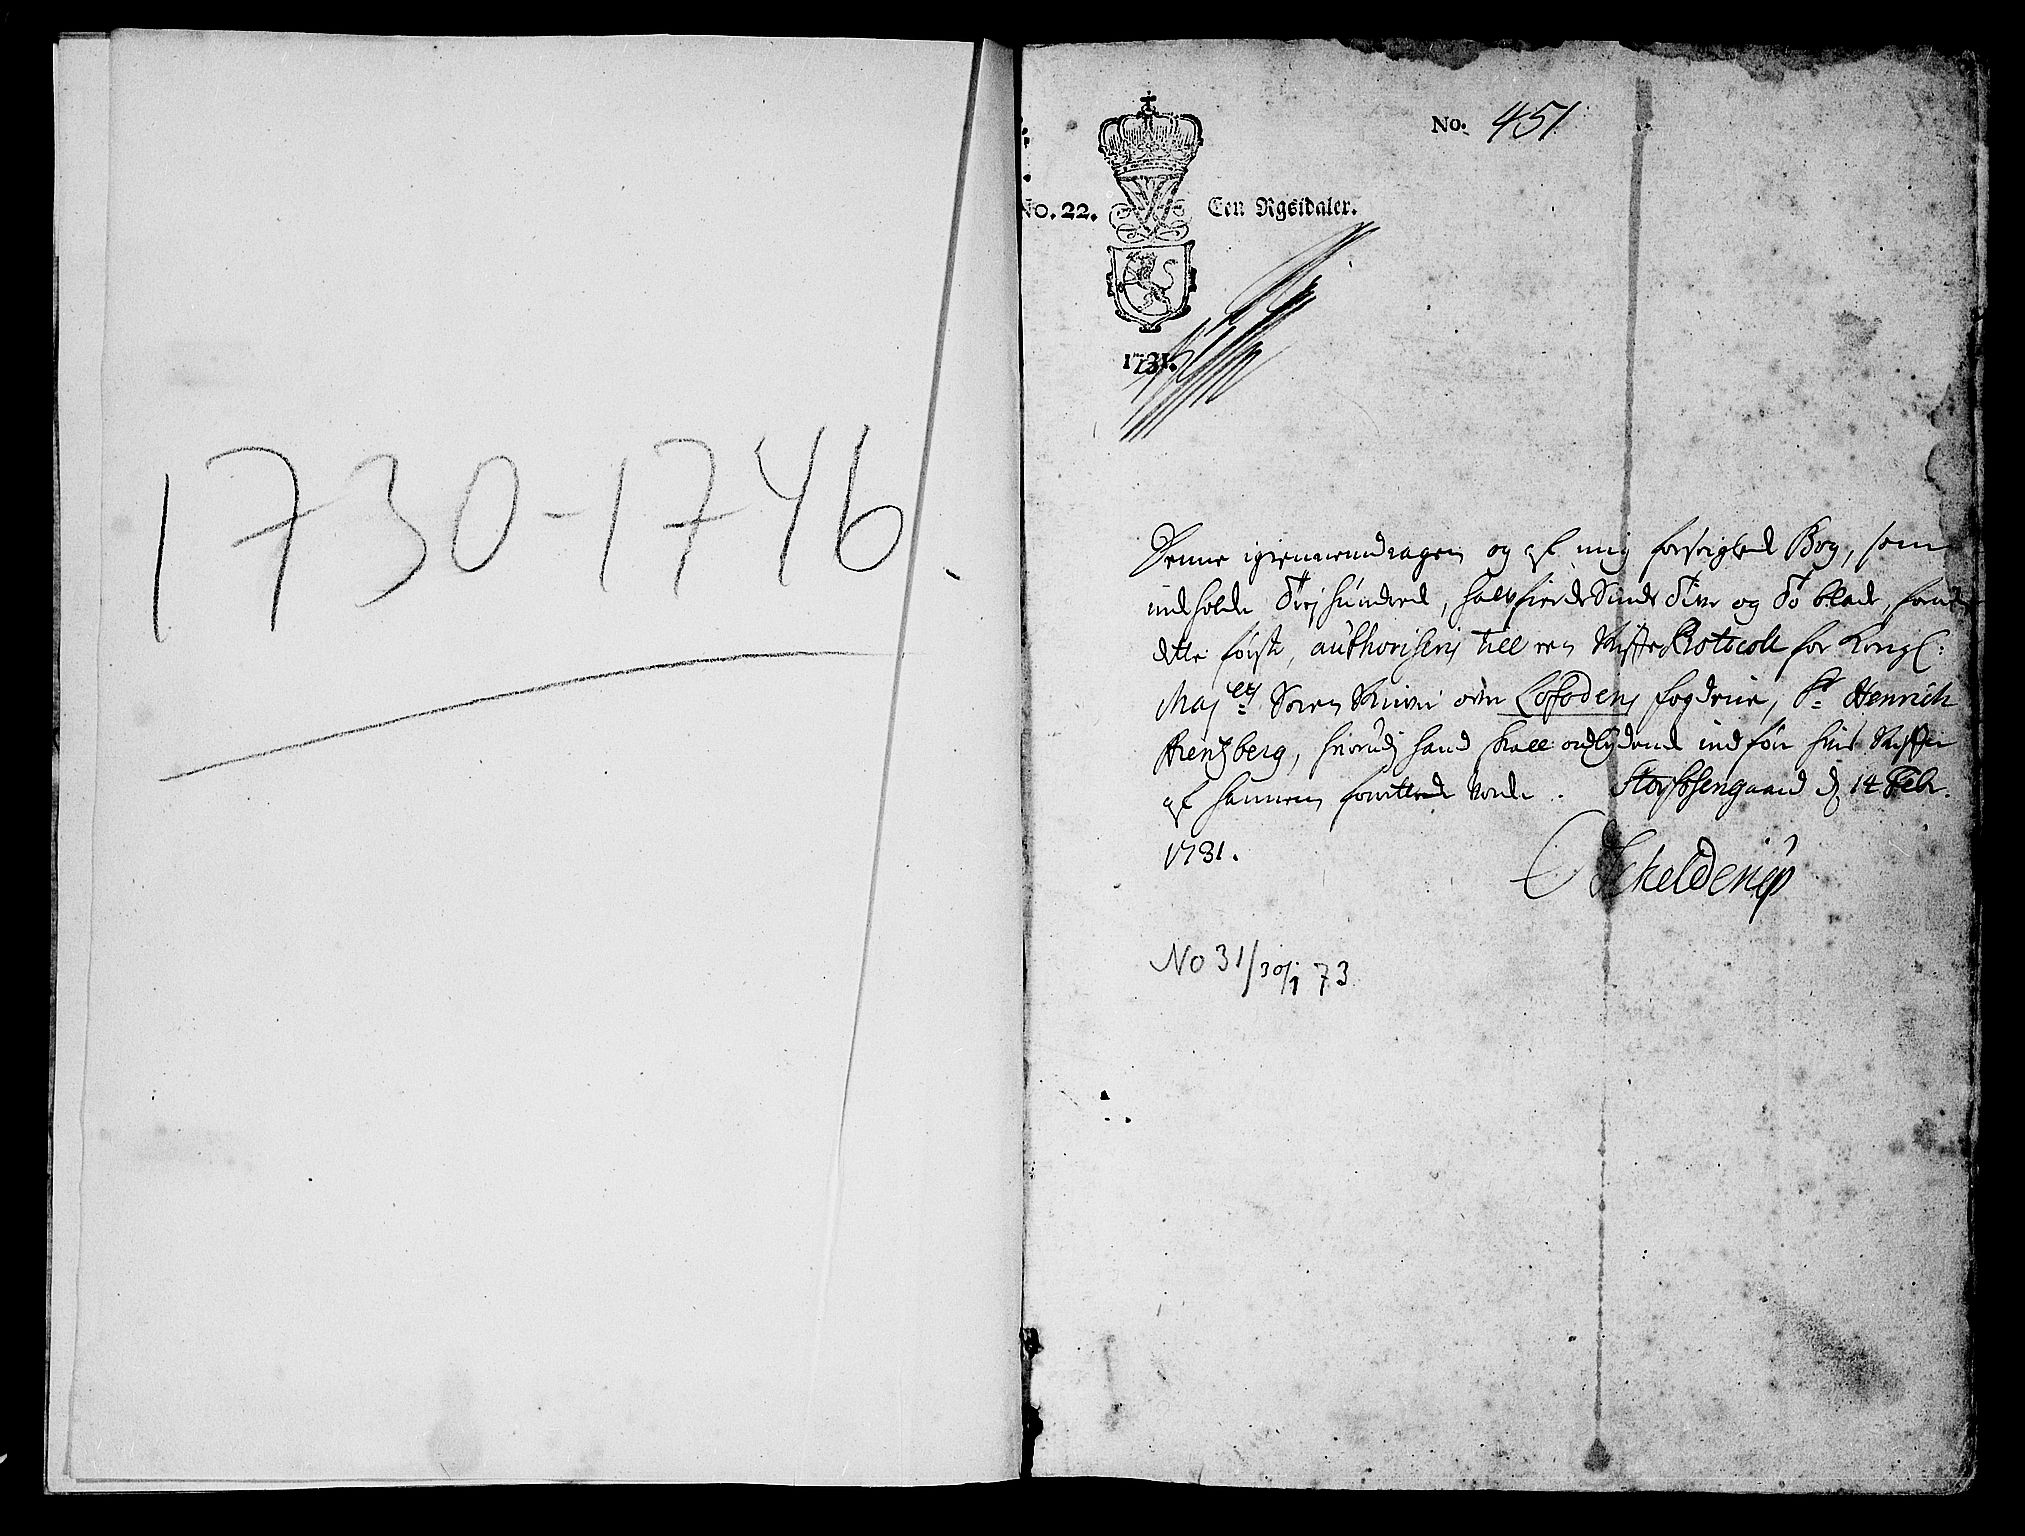 1730-1746.
No. 451
No. 22. Een Rgsidaler.
1731.
Denne igiennemdragen og af mig forseiglede Bog, som
indholder Trej hundred, halvfierdesinds Tive og To blade, foruden
dette første, authoriseris till een Skifte Protocoll for Kongl:
May:ts Soren Skriver over Lofodens fogderie, Sr. Henrich
Arentzberg, hvorudj hand skall ordlydende indføre hvis Skifter
af hannem forrettede vorder. Storfosengaard d. 14 Febr.
1731.
Schelderup
No 31/30/1 73